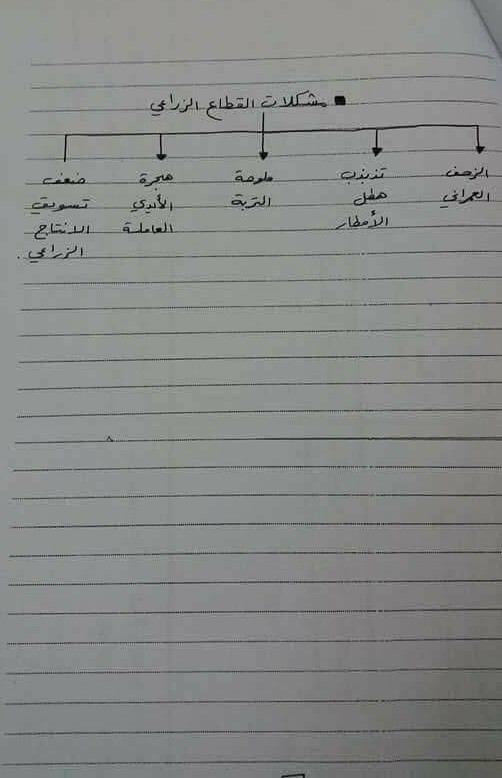 ■ مشكلات القطاع الزراعي
الزحف
العمراني
تذبذب
هطل
الأمطار
ملوحة
التربة
هجرة
الأيدي
العاملة
ضعف
تسويق
الانتاج
الزراعي.